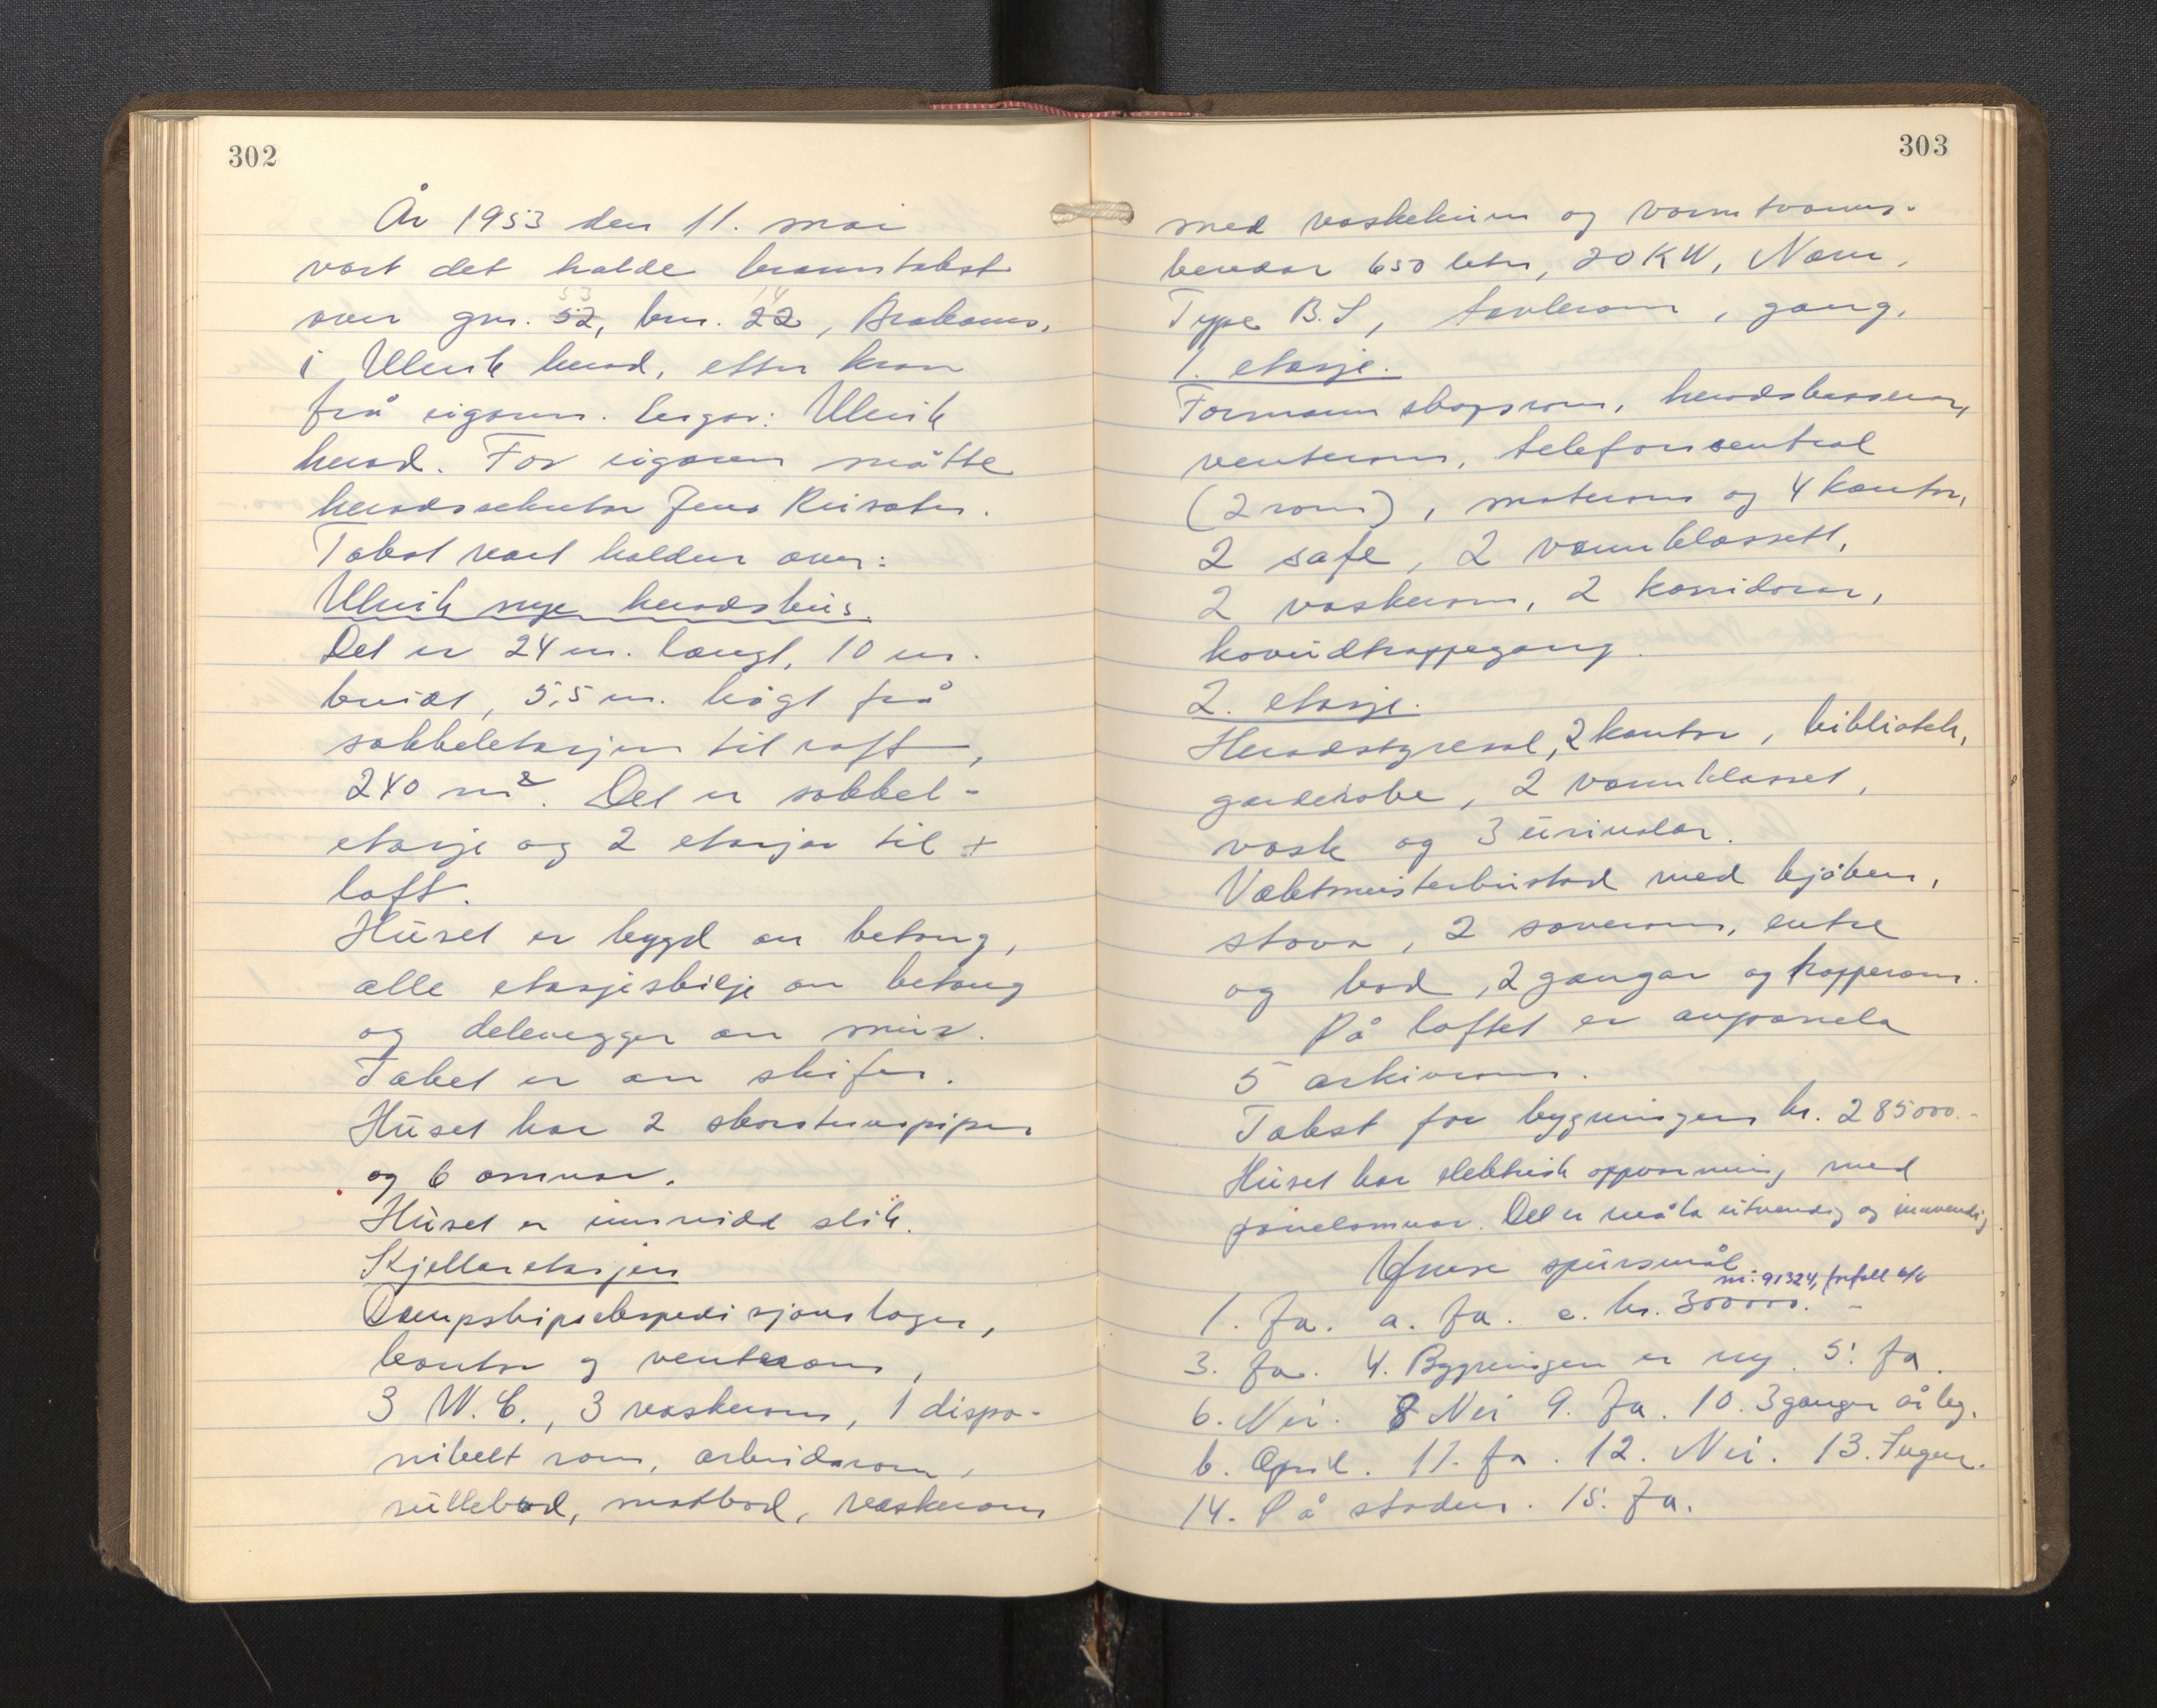 302
År 1953 den 11. mai
vart det halde branntakst
53 14
over gnr. 52, bnr. 22, Brakanes,
i Ulvik herad, etter krav
frå eigaren. Eigar: Ulvik
herad. For eigaren møtte
heradssekretær Jens Reisæter.
Takst vart halden over:
Ulvik nye heradshus.
Det er 24 m. langt, 10 m.
breidt, 5,5 m. høgt frå
sokkeletasjen til raft,
240 m². Det er sokkel-
etasje og 2 etasjar til +
loft.
Huset er bygd av betong,
alle etasjeskilje av betong
og delevegger av mur.
Taket er av skifer.
Huset har 2 skorsteinspiper
og 6 omnar.
Huset er innreidd slik.
Kjellaretasjen
Dampskipsekspedisjons lager,
kontor og venterom,
3 W.C., 3 vaskerom, 1 dispo-
nibelt rom, arbeidsrom,
rullebod, matbod, vaskerom
303
med vaskekum og varmtvanns-
beredar 650 liter, 20 KW, Norm.
Type B.S, tavlerom, gang.
1. etasje.
Formannskapsrom, heradskasserar,
venterom, telefonsentral
(2 rom), møterom og 4 kontor,
2 safe, 2 vannklossett,
2 vaskerom, 2 korridorar,
hovudtrappegang.
2. etasje.
Heradstyresal, 2 kontor, bibliotek,
garderobe, 2 vannklosset,
vask og 3 urinalar.
Vaktmeisterbustad med kjøken,
stova, 2 soverom, entre
og bod, 2 gangar og trapperom.
På loftet er avpanela
5 arkivrom.
Takst for bygningen kr. 285000.-
Huset har elektrisk oppvarming med
panelomnar. Det er måla utvendig og innvendig
Ymse spursmål
nr. 91324, forfall 6/6
1. Ja. a. Ja. c. kr. 300000. -
3. Ja. 4. Bygningen er ny. 5. Ja.
6. Nei. 8 Nei 9. Ja. 10. 3 ganger årleg.
b. April. 11. Ja. 12. Nei. 13. Ingen.
14. På staden. 15. Ja.